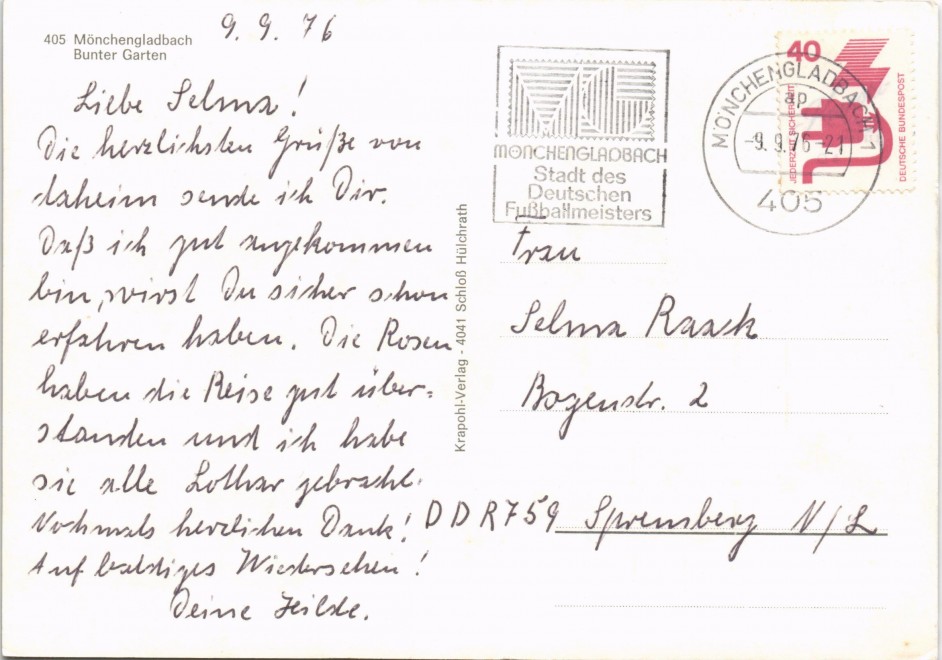 405 Mönchengladbach
Bunter Garten
9. 9. 76
Liebe Selma!
Die herzlichsten Grüße von
daheim sende ich Dir.
Daß ich gut angekommen
bin, wirst Du sicher schon
erfahren haben. Die Rosen
haben die Reise gut über=
standen und ich habe
sie alle Lothar gebracht.
Nochmals herzlichen Dank!
Auf baldiges Wiedersehen!
Deine Hilde.
Krapohl-Verlag - 4041 Schloß Hülchrath
MÖNCHENGLADBACH
Stadt des
Deutschen
Fußballmeisters
MÖNCHENGLADBACH 1
ap
-9.9.76-21
405
40
JEDERZEIT SICHERHEIT
DEUTSCHE BUNDESPOST
Frau
Selma Raack
Bogenstr. 2
DDR 759 Spremberg N/L